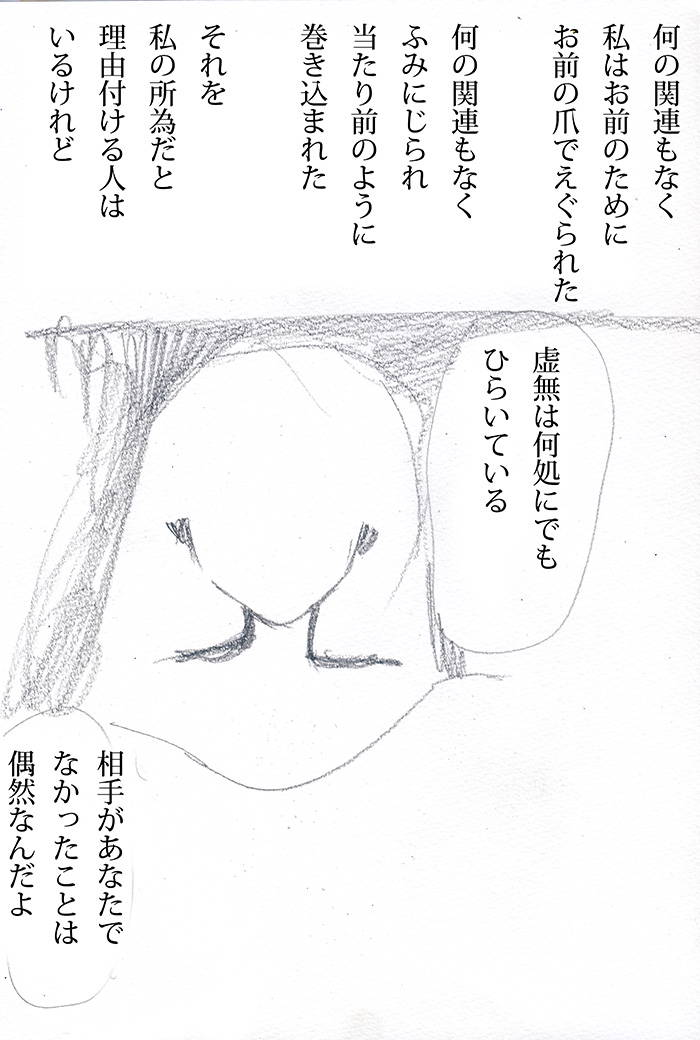 何の関連もなく
私はお前のために
お前の爪でえぐられた
何の関連もなく
ふみにじられ
当たり前のように
巻き込まれた
それを
私の所為だと
理由付ける人は
いるけれど
虚無は何処にでも
ひらいている
相手があなたで
なかったことは
偶然なんだよ